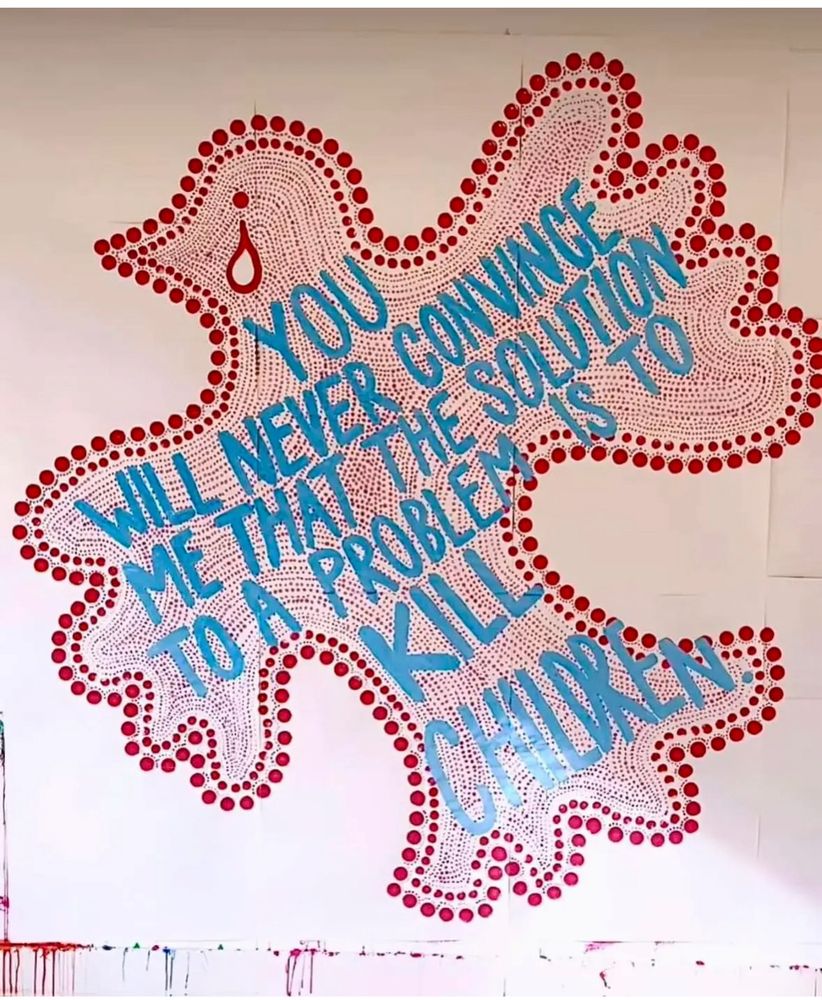 YOU
WILL NEVER CONVINCE
ME THAT THE SOLUTION
TO A PROBLEM IS TO
KILL
CHILDREN.